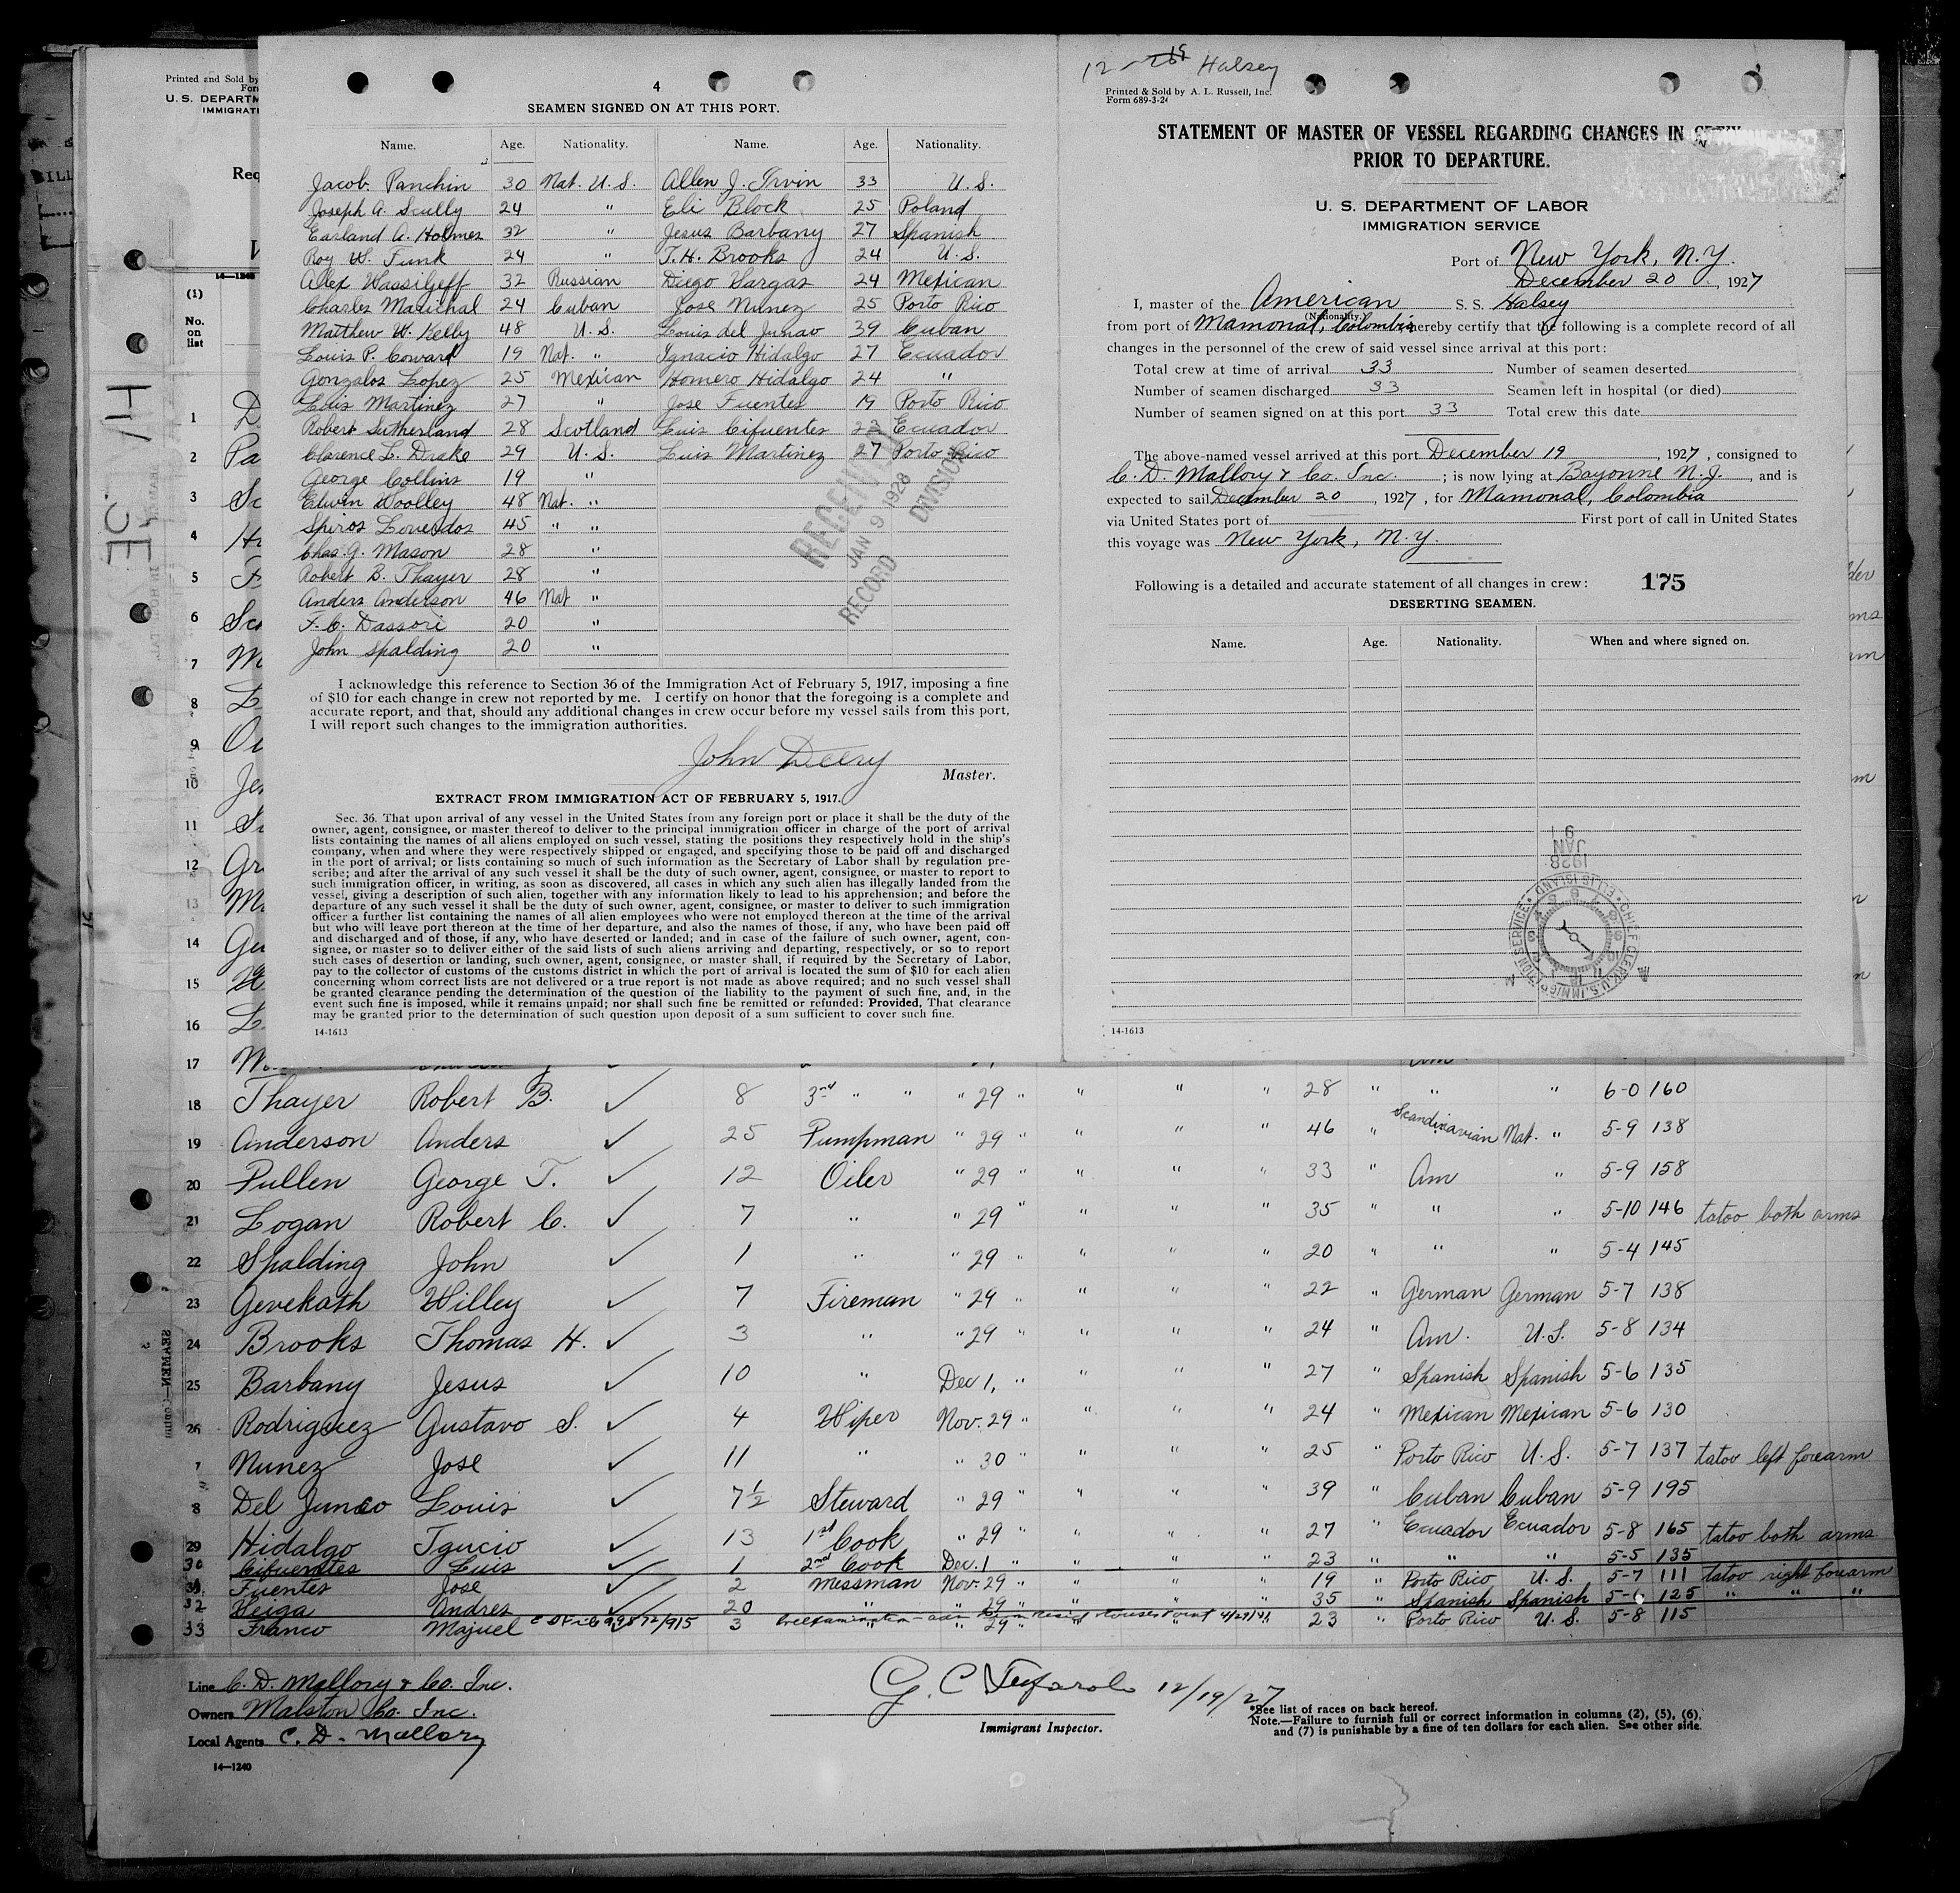 Printed and Sold by
U. S. DEPARTM
IMMIGRATI
Req
(1)
No.
on
list
4
SEAMEN SIGNED ON AT THIS PORT.
Name. Age. Nationality. Name. Age. Nationality.
Jacob Panchin 30 Nat. U. S. Allen J. Irvin 33 U. S.
Joseph A. Scully 24 " Eli Block 25 Poland
Earland A. Holmes 32 " Jesus Barbany 27 Spanish
Roy W. Funk 24 " T. H. Brooks 24 U. S.
Alex Wassiljeff 32 Russian Diego Vargas 24 Mexican
Charles Marichal 24 Cuban Jose Nunez 25 Porto Rico
Matthew W. Kelly 48 U. S. Louis del Junco 39 Cuban
Louis P. Coward 19 Nat. " Ignacio Hidalgo 27 Ecuador
Gonzalos Lopez 25 Mexican Homero Hidalgo 24 "
Luis Martinez 27 " Jose Fuentes 19 Porto Rico
Robert Sutherland 28 Scotland Luis Cifuentes 23 Ecuador
Clarence L. Drake 29 U. S. Luis Martinez 27 Porto Rico
George Collins 19 "
Edwin Woolley 48 Nat. "
Spiros Loverdos 45 " "
Chas. G. Mason 28 "
Robert B. Thayer 28 "
Anders Anderson 46 Nat "
F. C. Dassori 20 "
John Spalding 20 "
RECEIVED
JAN 9 1928
RECORD DIVISION
I acknowledge this reference to Section 36 of the Immigration Act of February 5, 1917, imposing a fine
of $10 for each change in crew not reported by me. I certify on honor that the foregoing is a complete and
accurate report, and that, should any additional changes in crew occur before my vessel sails from this port,
I will report such changes to the immigration authorities.
John Deery
Master.
EXTRACT FROM IMMIGRATION ACT OF FEBRUARY 5, 1917.
Sec. 36. That upon arrival of any vessel in the United States from any foreign port or place it shall be the duty of the
owner, agent, consignee, or master thereof to deliver to the principal immigration officer in charge of the port of arrival
lists containing the names of all aliens employed on such vessel, stating the positions they respectively hold in the ship's
company, when and where they were respectively shipped or engaged, and specifying those to be paid off and discharged
in the port of arrival; or lists containing so much of such information as the Secretary of Labor shall by regulation pre-
scribe; and after the arrival of any such vessel it shall be the duty of such owner, agent, consignee, or master to report to
such immigration officer, in writing, as soon as discovered, all cases in which any such alien has illegally landed from the
vessel, giving a description of such alien, together with any information likely to lead to his apprehension; and before the
departure of any such vessel it shall be the duty of such owner, agent, consignee, or master to deliver to such immigration
officer a further list containing the names of all alien employees who were not employed thereon at the time of the arrival
but who will leave port thereon at the time of her departure, and also the names of those, if any, who have been paid off
and discharged and of those, if any, who have deserted or landed; and in case of the failure of such owner, agent, con-
signee, or master so to deliver either of the said lists of such aliens arriving and departing, respectively, or so to report
such cases of desertion or landing, such owner, agent, consignee, or master shall, if required by the Secretary of Labor,
pay to the collector of customs of the customs district in which the port of arrival is located the sum of $10 for each alien
concerning whom correct lists are not delivered or a true report is not made as above required; and no such vessel shall
be granted clearance pending the determination of the question of the liability to the payment of such fine, and, in the
event such fine is imposed, while it remains unpaid; nor shall such fine be remitted or refunded: Provided, That clearance
may be granted prior to the determination of such question upon deposit of a sum sufficient to cover such fine.
14-1613
12-19 Halsey
Printed & Sold by A. L. Russell, Inc.
Form 689-3-24
STATEMENT OF MASTER OF VESSEL REGARDING CHANGES IN CREW
PRIOR TO DEPARTURE.
U. S. DEPARTMENT OF LABOR
IMMIGRATION SERVICE
Port of New York, N.Y.
December 20, 1927
I, master of the American S. S. Halsey
(Nationality.)
from port of Mamonal, Colombia hereby certify that the following is a complete record of all
changes in the personnel of the crew of said vessel since arrival at this port:
Total crew at time of arrival 33 Number of seamen deserted
Number of seamen discharged 33 Seamen left in hospital (or died)
Number of seamen signed on at this port 33 Total crew this date
The above-named vessel arrived at this port December 19, 1927, consigned to
C. D. Mallory & Co. Inc.; is now lying at Bayonne N.J., and is
expected to sail December 20, 1927, for Mamonal, Colombia
via United States port of First port of call in United States
this voyage was New York, N.Y.
Following is a detailed and accurate statement of all changes in crew: 175
DESERTING SEAMEN.
Name. Age. Nationality. When and where signed on.
JAN
1928
CHIEF CLERK U.S. IMMIGRATION SERVICE ELLIS ISLAND
14-1613
18 Thayer Robert B. ✓ 8 3rd " " " 29 " " " " 28 " " " 6-0 160
19 Anderson Anders ✓ 25 Pumpman " 29 " " " " 46 " Scandinavian Nat. " 5-9 138
20 Pullen George T. ✓ 12 Oiler " 29 " " " " 33 " Am " 5-9 158
21 Logan Robert C. ✓ 7 " " 29 " " " " 35 " " " 5-10 146 tatoo both arms
22 Spalding John ✓ 1 " " 29 " " " " 20 " " " 5-4 145
23 Gevekoth Willey ✓ 7 Fireman " 29 " " " " 22 " German German 5-7 138
24 Brooks Thomas H. ✓ 3 " " 29 " " " " 24 " Am. U.S. 5-8 134
25 Barbany Jesus ✓ 10 " Dec 1, " " " " 27 " Spanish Spanish 5-6 135
26 Rodriguez Gustavo S. ✓ 4 Wiper Nov. 29 " " " " 24 " Mexican Mexican 5-6 130
7 Nunez Jose ✓ 11 " " 30 " " " 25 " Porto Rico U.S. 5-7 137 tatoo left forearm
8 Del Junco Louis ✓ 7½ Steward " 29 " " " " 39 " Cuban Cuban 5-9 195
29 Hidalgo Igucio ✓ 13 1st Cook " 29 " " " " 27 " Ecuador Ecuador 5-8 165 tatoo both arms
30 Cifuentes Luis ✓ 1 2nd Cook Dec. 1 " " " " 23 " " " 5-5 135
31 Fuentes Jose ✓ 2 Messman Nov. 29 " " " " 19 " Porto Rico U.S. 5-7 111 tatoo right forearm
32 Veiga Andres ✓ 20 " " 29 " " " " 35 " Spanish Spanish 5-6 125 " " "
33 Franco Majuel 3 " " 29 " " " 23 " Porto Rico U.S. 5-8 115
Line C. D. Mallory & Co. Inc.
Owners Malston Co. Inc.
Local Agents C. D. Mallory
14—1240
12/19/27
Immigrant Inspector.
*See list of races on back hereof.
Note.—Failure to furnish full or correct information in columns (2), (5), (6),
and (7) is punishable by a fine of ten dollars for each alien. See other side.